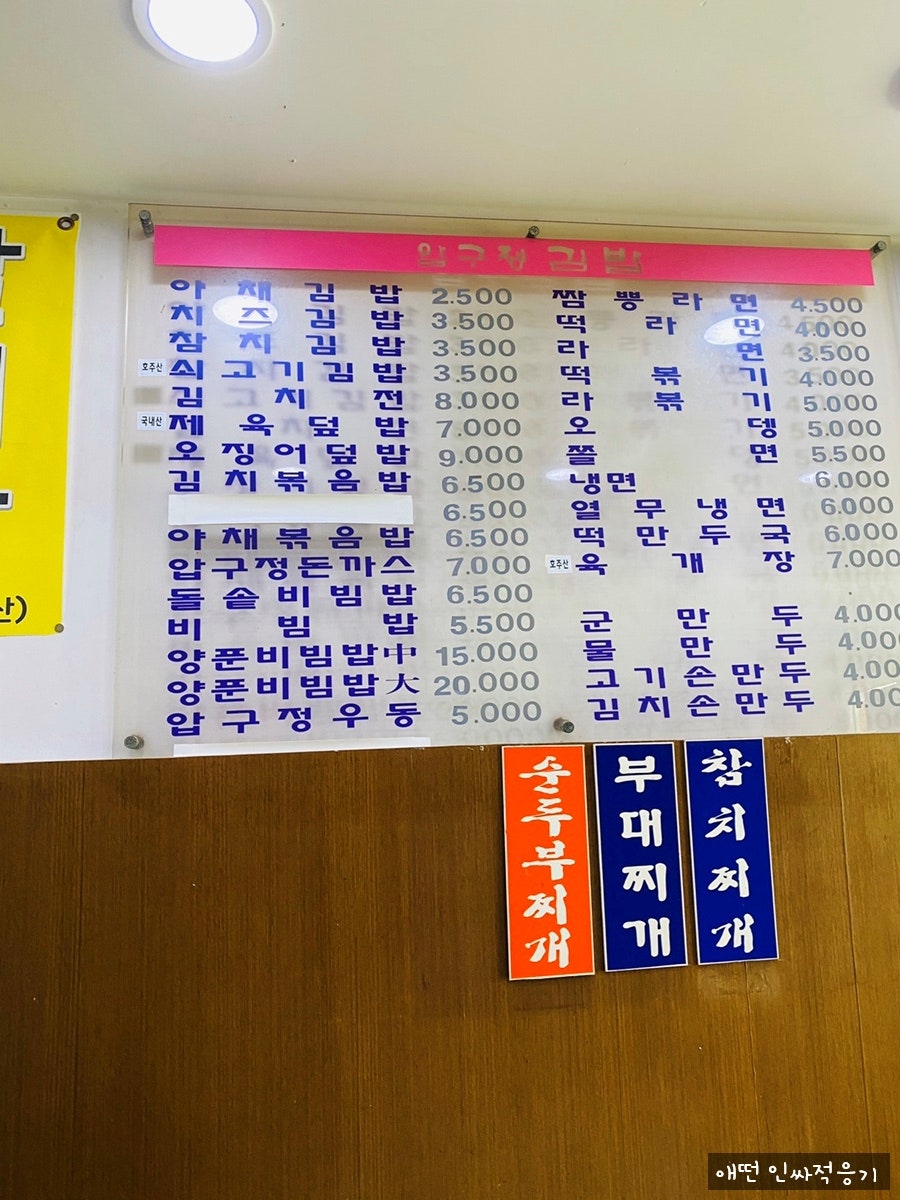 압구정김밥
야채김밥 2.500
치즈김밥 3.500
참치김밥 3.500
호주산 쇠고기김밥 3.500
김치전 8.000
국내산 제육덮밥 7.000
오징어덮밥 9.000
김치볶음밥 6.500
6.500
야채볶음밥 6.500
압구정돈까스 7.000
돌솥비빔밥 6.500
비빔밥 5.500
양푼비빔밥中 15.000
양푼비빔밥大 20.000
압구정우동 5.000
짬뽕라면 4.500
떡라면 4.000
라면 3.500
떡볶기 4.000
라볶기 5.000
오뎅 5.000
쫄면 5.500
냉면 6.000
열무냉면 6.000
떡만두국 6.000
호주산 육개장 7.000
군만두 4.000
물만두 4.000
고기손만두 4.00
김치손만두 4.00
순두부찌개
부대찌개
참치찌개
산)
애떤 인싸적응기